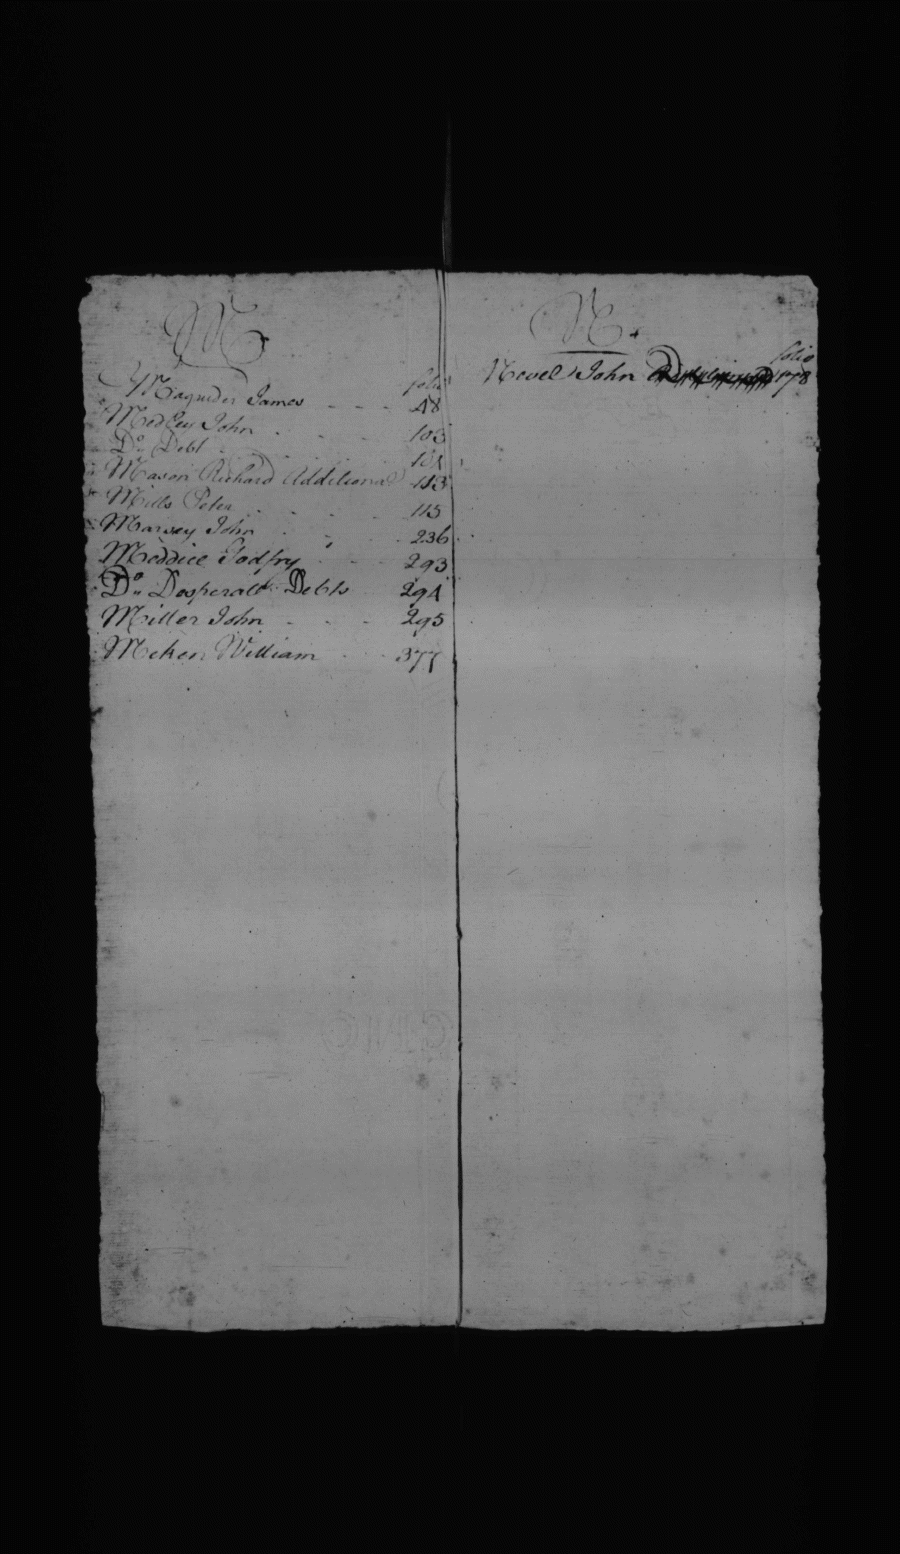 M
folio
Magruder James - - - 48
Medley John - - - - 103
Do. Debt - - - - 104
Mason Richard Additional 113
Mills Peter - - - - 115
Marvey John - - - - 236
Meddice Godfry - - - 293
Do. Desperate Debts 294
Miller John - - - - 295
Meken William - - - 377
N
folio
Nevel John 178